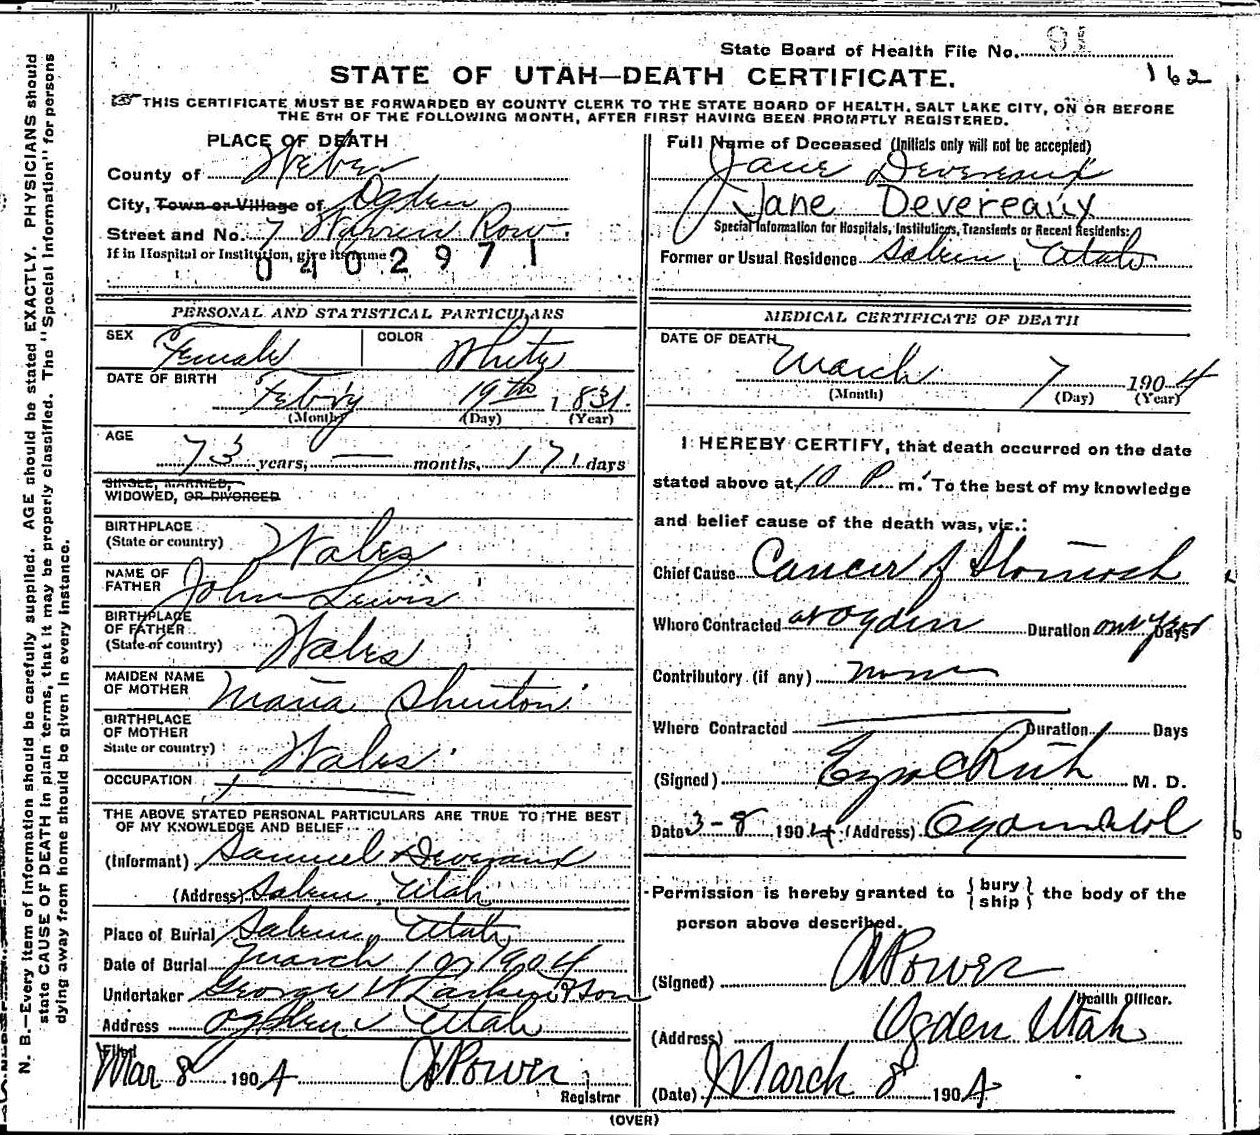 State Board of Health File No. 91
162
STATE OF UTAH—DEATH CERTIFICATE.
THIS CERTIFICATE MUST BE FORWARDED BY COUNTY CLERK TO THE STATE BOARD OF HEALTH, SALT LAKE CITY, ON OR BEFORE
THE 5TH OF THE FOLLOWING MONTH, AFTER FIRST HAVING BEEN PROMPTLY REGISTERED.
PLACE OF DEATH
County of Weber
City, Town or Village of Ogden
Street and No. 7 Warren Row
If in Hospital or Institution, give its name
0402971
PERSONAL AND STATISTICAL PARTICULARS
SEX Female COLOR White
DATE OF BIRTH Feby 19th 1831
(Month) (Day) (Year)
AGE
73 years, — months, 17 days
SINGLE, MARRIED,
WIDOWED, OR DIVORCED
BIRTHPLACE
(State or country) Wales
NAME OF
FATHER John Lewis
BIRTHPLACE
OF FATHER
(State or country) Wales
MAIDEN NAME
OF MOTHER Maria
BIRTHPLACE
OF MOTHER
State or country) Wales
OCCUPATION
THE ABOVE STATED PERSONAL PARTICULARS ARE TRUE TO THE BEST
OF MY KNOWLEDGE AND BELIEF
(Informant) Samuel Deveraux
(Address) Salem, Utah
Place of Burial Salem, Utah
Date of Burial March 10 1904
Undertaker George W Larkin & Son
Address Ogden Utah
Filed
Mar 8 1904 A Power
Registrar
Full Name of Deceased (Initials only will not be accepted)
Jane Devereaux
Jane Devereaux
Special Information for Hospitals, Institutions, Transients or Recent Residents:
Former or Usual Residence Salem, Utah
MEDICAL CERTIFICATE OF DEATH
DATE OF DEATH
March 7 1904
(Month) (Day) (Year)
I HEREBY CERTIFY, that death occurred on the date
stated above at 10 P. m. To the best of my knowledge
and belief cause of the death was, viz.:
Chief Cause Cancer of Stomach
Where Contracted at Ogden Duration one year Days
Contributory (if any) none
Where Contracted Duration Days
(Signed) M. D.
Date 3-8 1904 (Address)
Permission is hereby granted to {bury ship} the body of the
person above described.
(Signed) A Power
Health Officer.
(Address) Ogden Utah
(Date) March 8 1904
(OVER)
N. B.—Every item of information should be carefully supplied. AGE should be stated EXACTLY. PHYSICIANS should
state CAUSE OF DEATH in plain terms, that it may be properly classified. The "Special Information" for persons
dying away from home should be given in every instance.